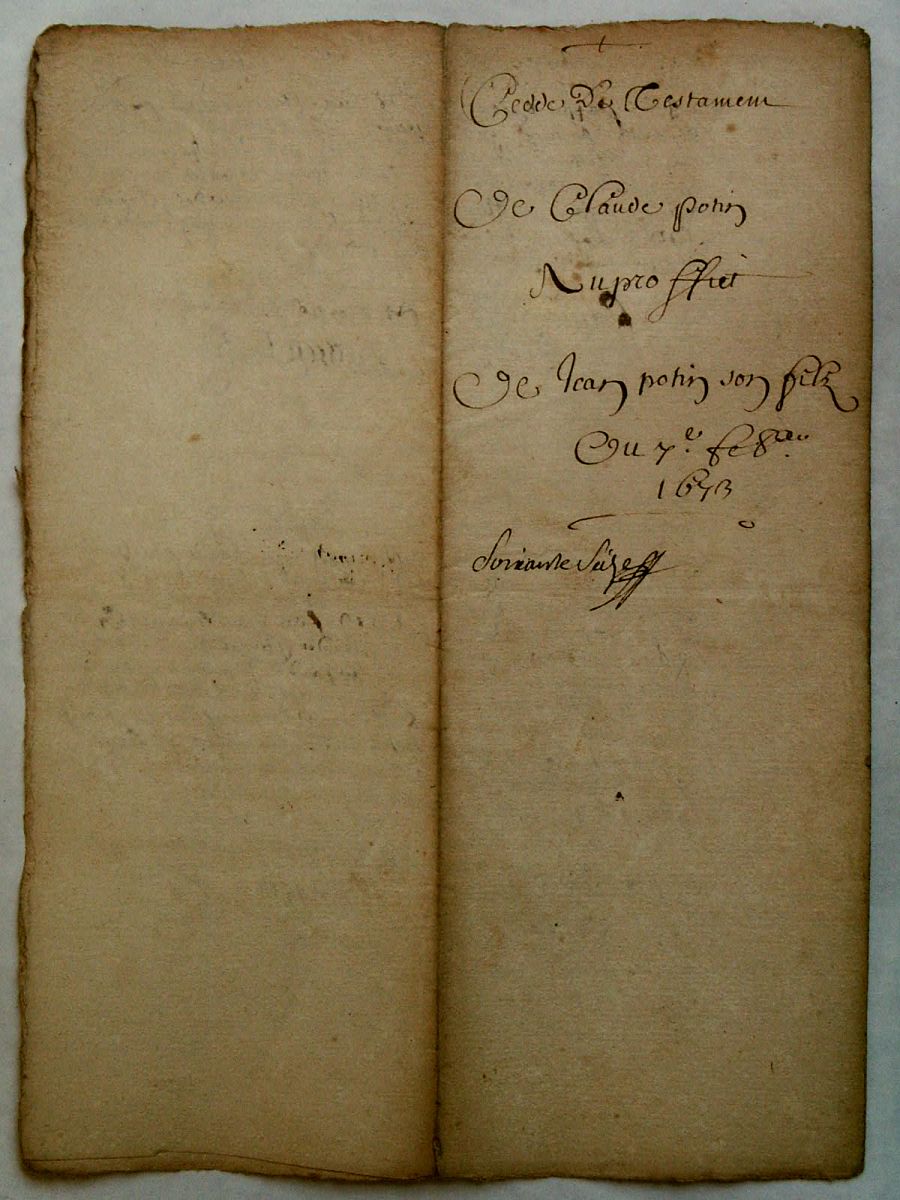 Cedde De Testament
De Claude potin
Au proffict
De Jean potin son filz
Du 7e. feb
1673
Soixante Sèze